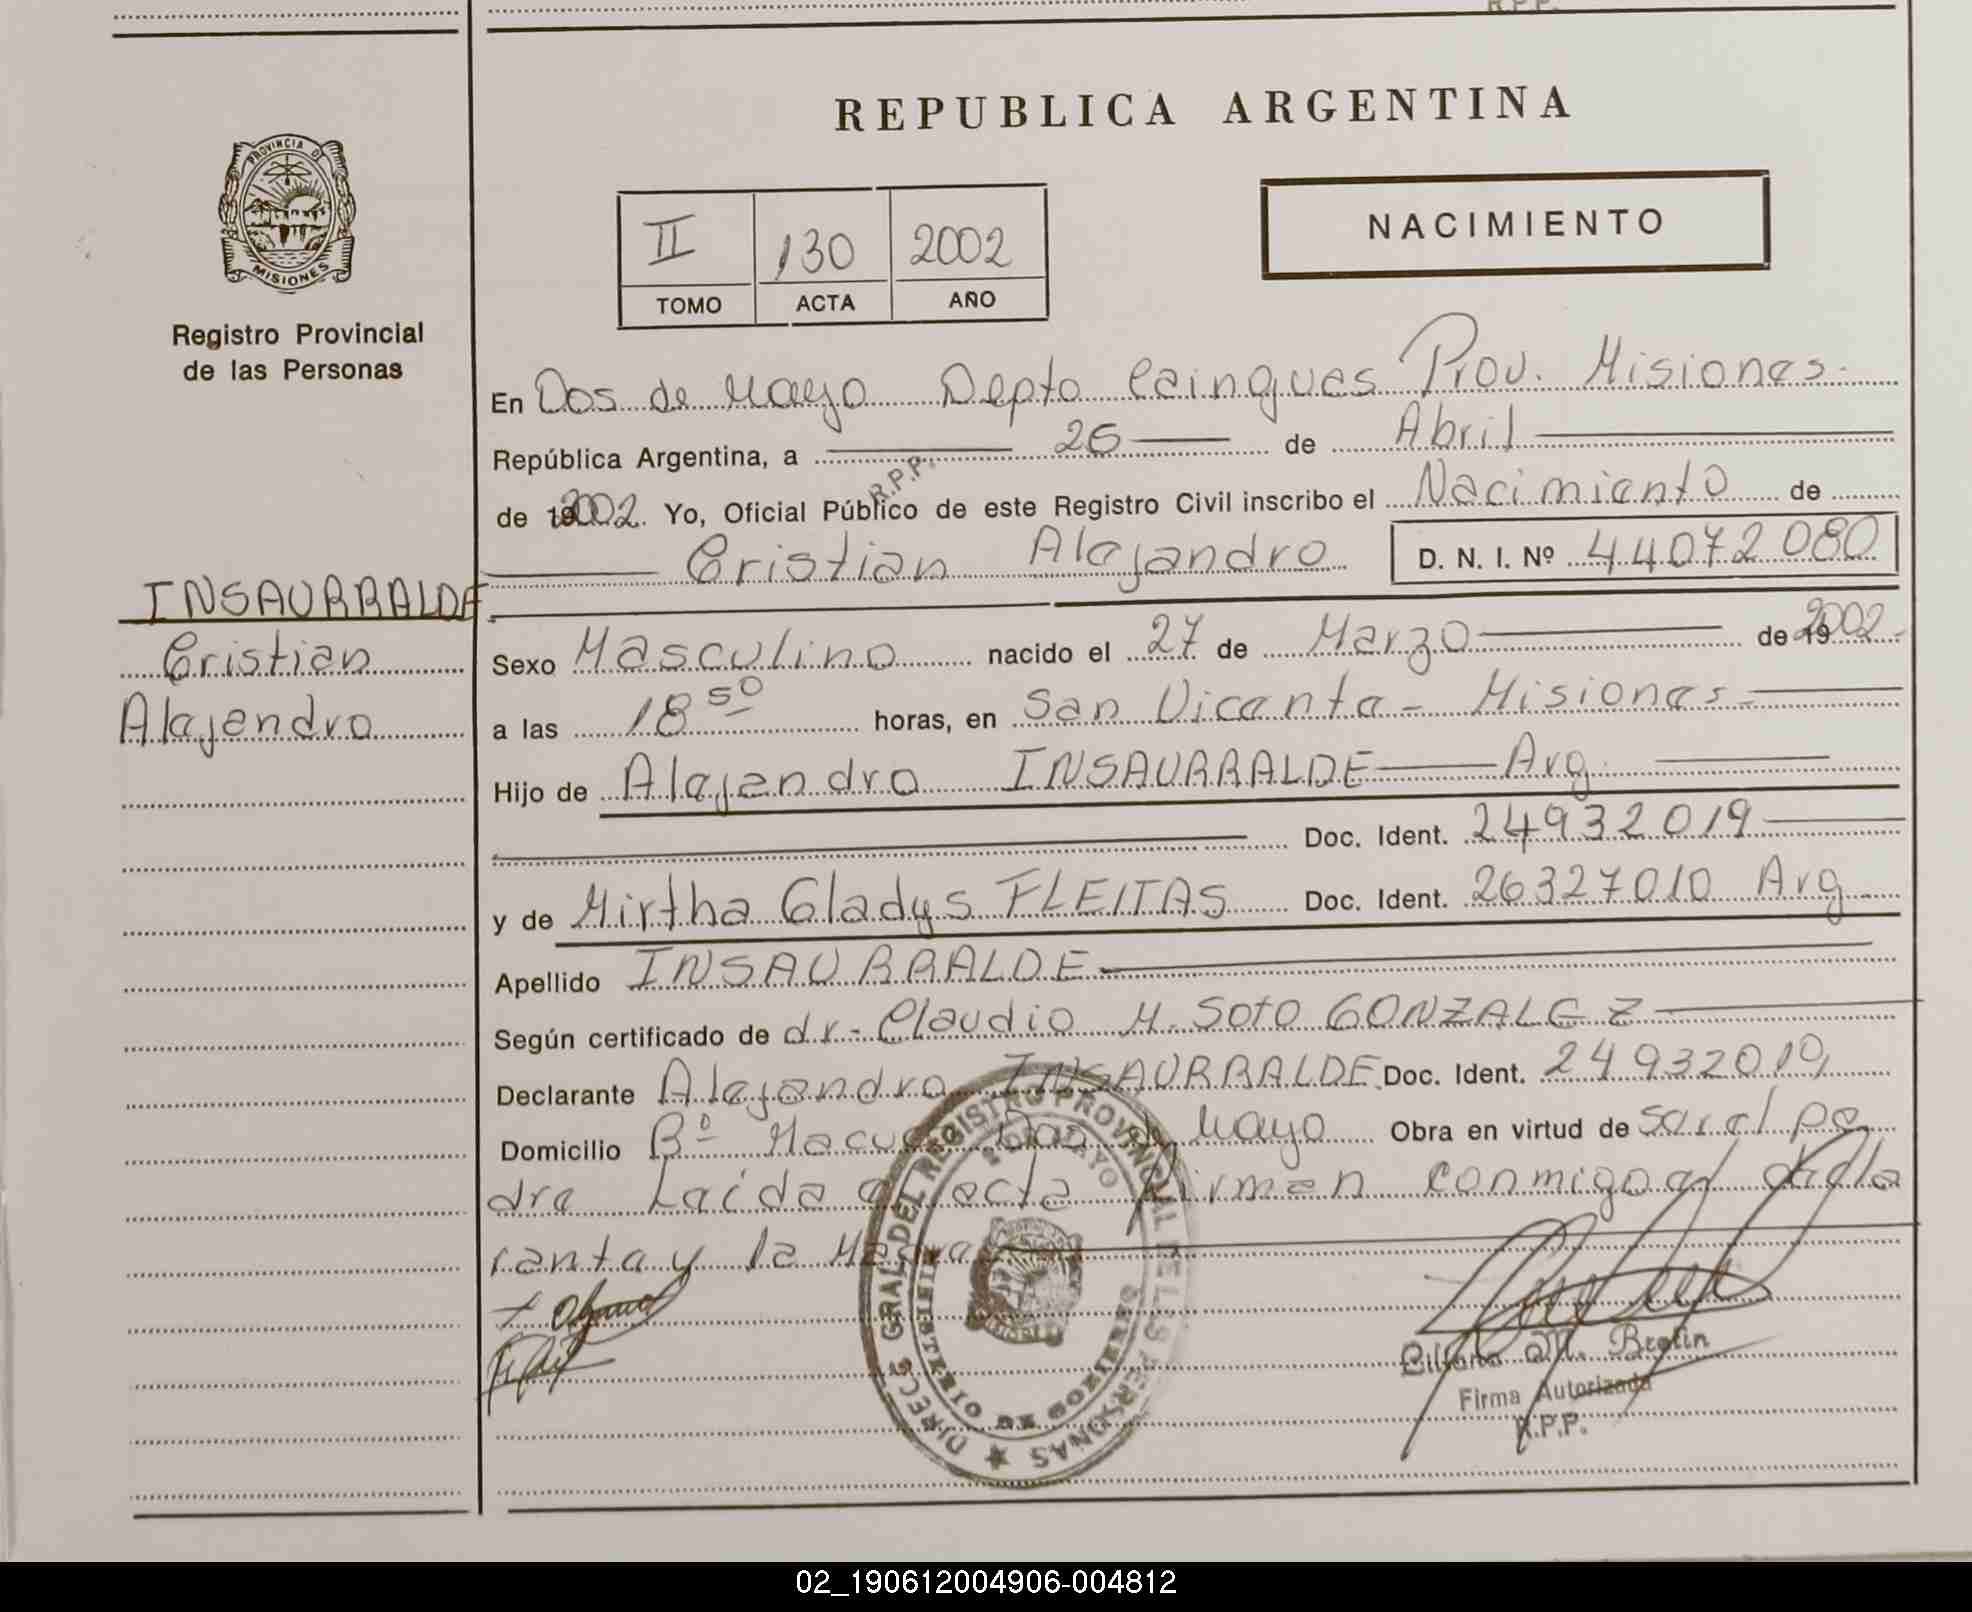 R.P.P.
REPUBLICA ARGENTINA
PROVINCIA DE
MISIONES
Registro Provincial
de las Personas
NACIMIENTO
II 130 2002
TOMO ACTA AÑO
En Dos de Mayo Depto Cainguas Prov. Misiones.
República Argentina, a 26 de Abril
de 2002. Yo, Oficial Público de este Registro Civil inscribo el Nacimiento de
R.P.P.
Cristian Alejandro D. N. I. Nº 44072080
INSAURRALDE
Cristian
Alejandro
Sexo Masculino nacido el 27 de Marzo de 19 2002
a las 18 50 horas, en San Vicente - Misiones -
Hijo de Alejandro INSAURRALDE Arg.
Doc. Ident. 24932019
y de Mirtha Gladys FLEITAS Doc. Ident. 26327010 Arg
Apellido INSAURRALDE
Según certificado de dr. Claudio M. Soto GONZALEZ
Declarante Alejandro INSAURRALDE Doc. Ident. 24932019
Domicilio Bº Dos de Mayo Obra en virtud de ser el pa
dre Leída el acta firman conmigo el decla
rante y la Madre
DIRECC. GRAL. DEL REGISTRO PROVINCIAL DE LAS PERSONAS
2 DE MAYO
MINISTERIO DE GOBIERNO
M. Brolin
Firma Autorizada
R.P.P.
02_190612004906-004812